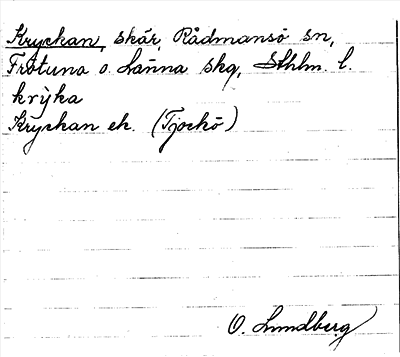 Kryckan, skär, Rådmansö sn,
Frötuna o. Länna skg, Sthlm. l.
krỳka
Kryckan ek. (Tjockö)
O. Lundberg